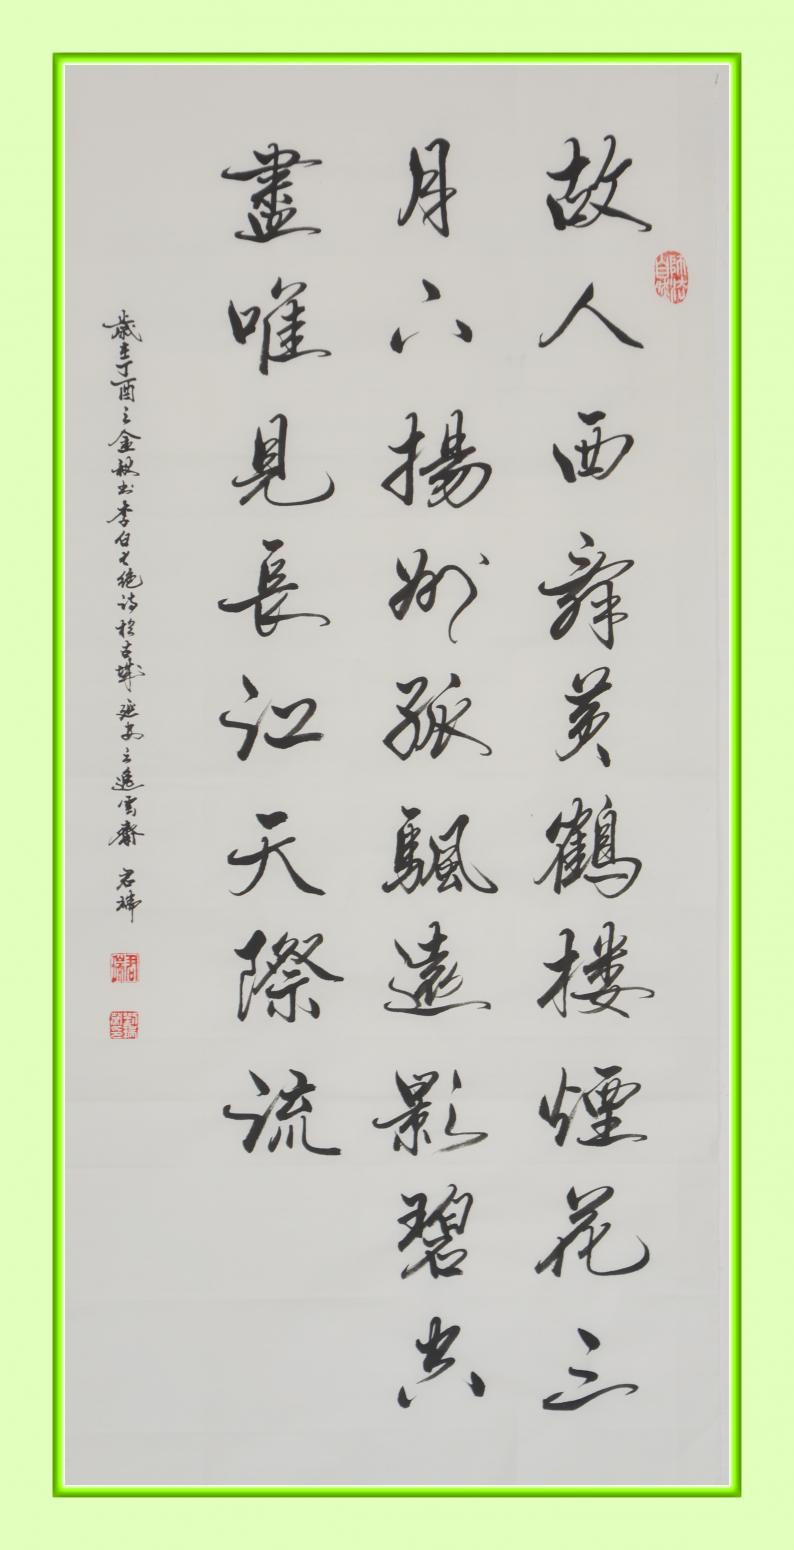 故人西辭黄鶴楼煙花三
月下揚州孤颿遠影碧空
盡唯見長江天際流
歲在丁酉之金秋书李白七绝诗於古城延安之逸雲齋 君